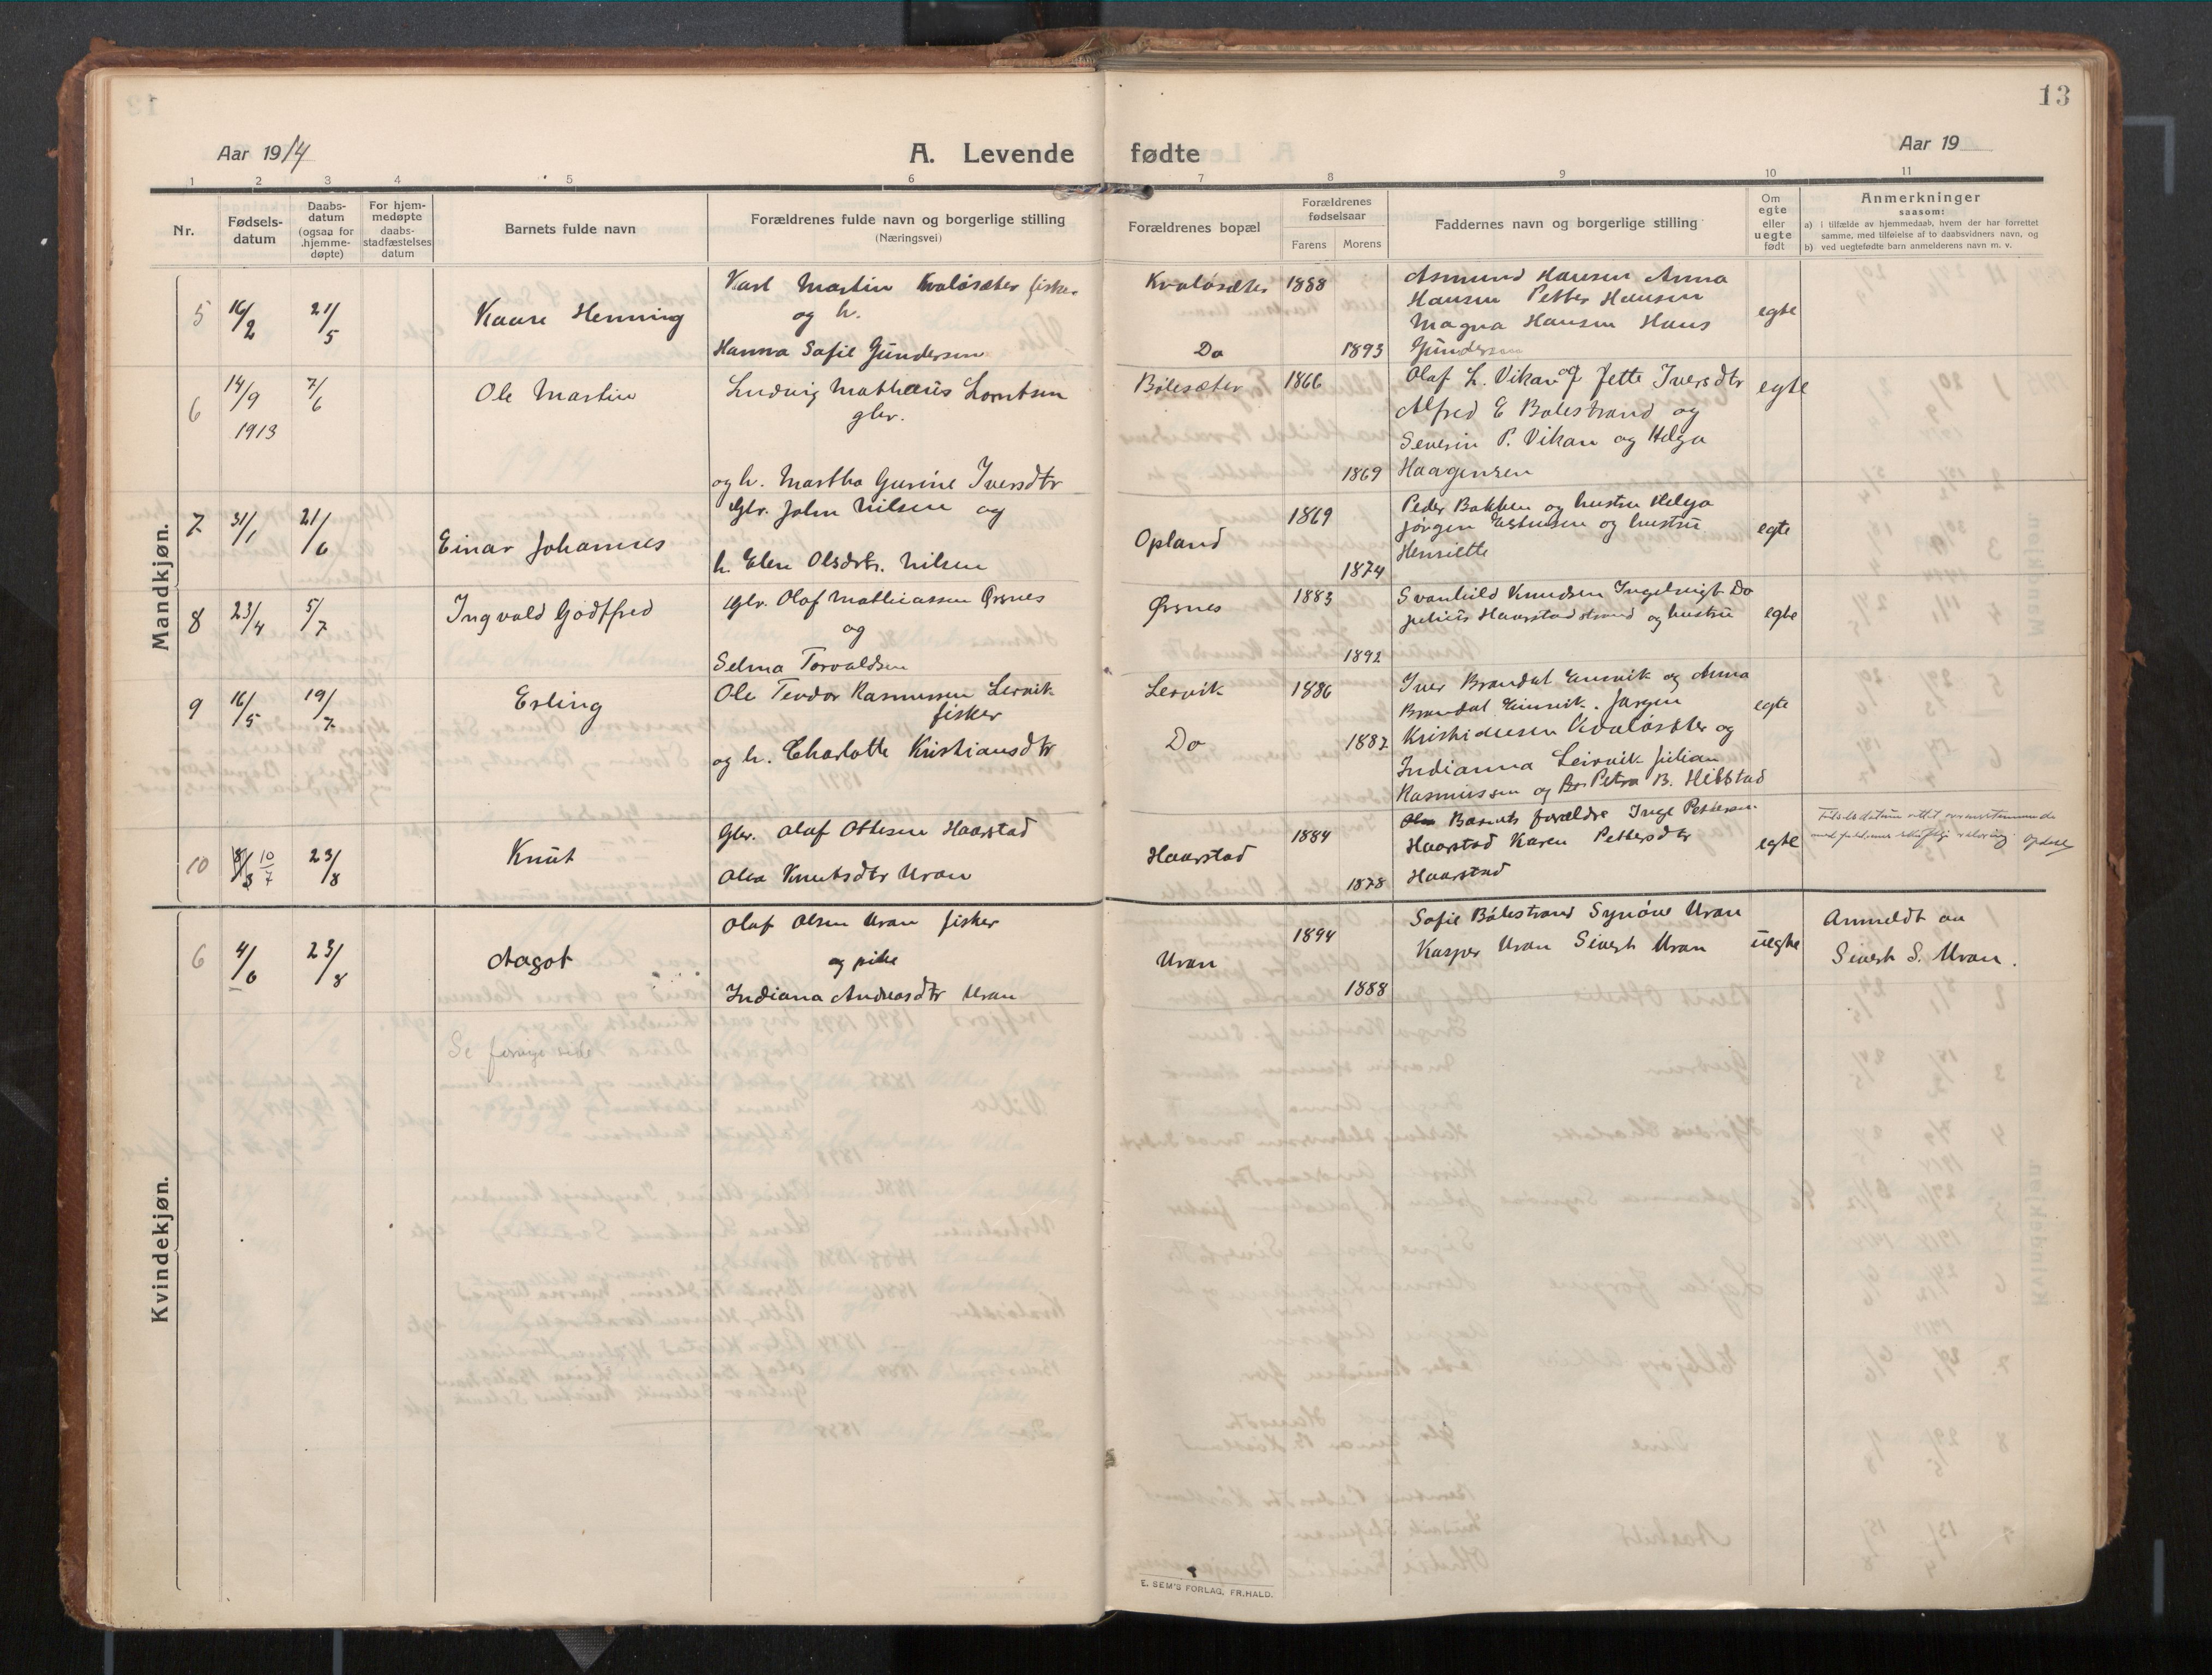 13
Aar 1914
A. Levende fødte
Aar 19
1 2 3 4 5 6 7 8 9 10 11
Nr.
Fødsels-
datum
Daabs-
datum
(ogsaa for
hjemme-
døpte)
For hjem-
medøpte
daabs-
stadfæstelses
datum
Barnets fulde navn
Forældrenes fulde navn og borgerlige stilling
(Næringsvei)
Forældrenes bopæl
Forældrenes
fødselsaar
Farens Morens
Faddernes navn og borgerlige stilling
Om
egte
eller
uegte
født
Anmerkninger
saasom:
a) i tilfælde av hjemmedaab, hvem der har forrettet
samme, med tilføielse af to daabsvidners navn, og
b) ved uegtefødte barn anmelderens navn m. v.
Mandkjøn.
5 16/2 21/5 Kaare Henning
Karl Martin Kvaløsæter fisker
og h.
Hanna Sofie Gundersen
Kvaløsæter 1888
Do 1893
Asmund Hansen Anna
Hansen Petter Hansen
Magna Hansen Hans
Gundersen
egte
6 14/9 1913 7/6 Ole Martin
Ludvig Mathæus Lorntsen
gbr.
og h. Martha Gurine Iversdtr
Bølesæter 1866
1869
Olaf L. Vikan og Jette Iversdtr
Alfred E Bølestrand og
Severin P. Vikan og Helga
Haagensen
egte
7 31/1 21/6 Einar Johannes
Gbr. John Nilsen og
h. Elen Olsdtr. Nilsen
Opland 1869
1874
Peder Bakken og hustru Helga
Jørgen Estensen og hustru
Henriette
egte
8 23/4 5/7 Ingvald Godtfred
Gbr. Olaf Mathiassen Ørsnes
og
Selma Torvaldsen
Ørsnes 1883
1892
Svanhild Knudsen Ingebrigt Do
Julius Haarstadstrand og hustru
egte
9 16/5 19/7 Erling
Ole Teodor Rasmussen Lervik
fisker
og h. Charlotte Kristiansdtr
Lervik 1886
Do 1887
Iver Brandal Einvik og Anna
Brandal Einvik. Jørgen
Kristiansen Kvaløsæter og
Indianna Leirvik Julian
Rasmussen og Petra B. Hibstad
egte
10 8/8 10/7 23/8 Knut
Gbr. Olaf Ottesen Haarstad
Olea Knutsdtr Uran
Haarstad 1884
1878
Barnets forældre Inge Pettersen
Haarstad Karen Pettersdtr
Haarstad
egte
Kvindekjøn.
6 4/6 23/8 Aagot
Olaf Olsen Uran fisker
og pike
Indiana Andreasdtr Uran
Uran 1894
1888
Sofie Bølestrand Synøve Uran
Kasper Uran Sivert Uran
uegte
Anmeldt av
Sivert S. Uran.
Se forrige side
E. SEM'S FORLAG, FR.HALD.